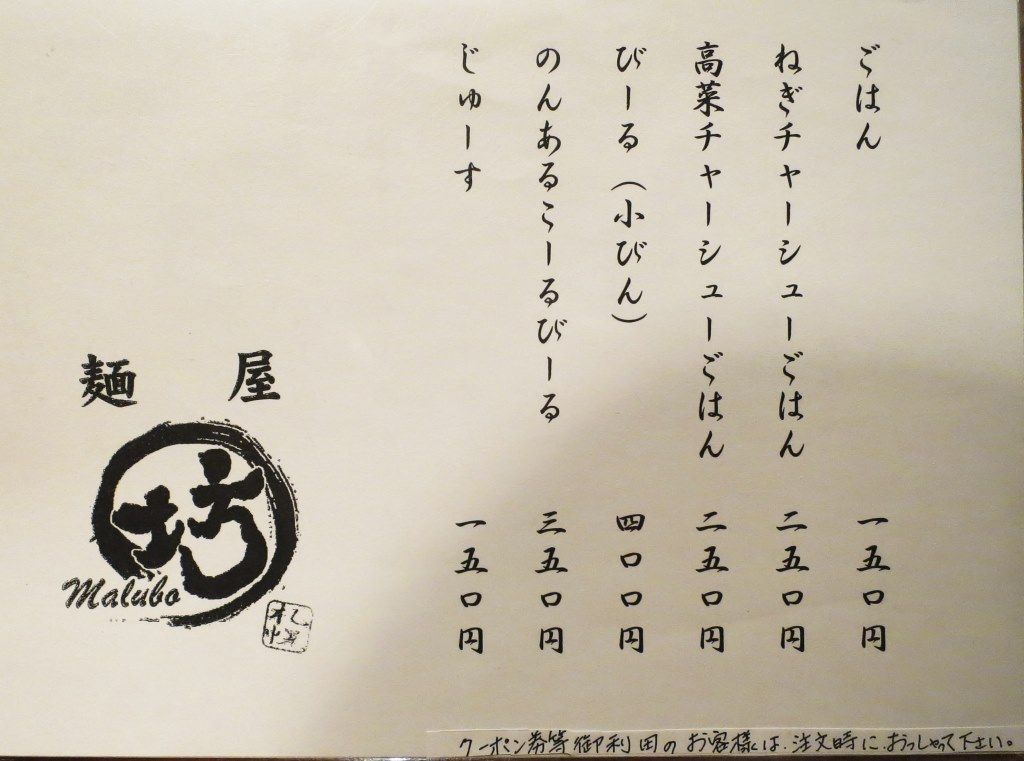 ごはん 一五〇円
ねぎチャーシューごはん 二五〇円
高菜チャーシューごはん 二五〇円
びーる（小びん） 四〇〇円
のんあるこーるびーる 三五〇円
じゅーす 一五〇円
麺屋
坊
Malubo
札幌
クーポン券等御利用のお客様は、注文時に、おっしゃって下さい。